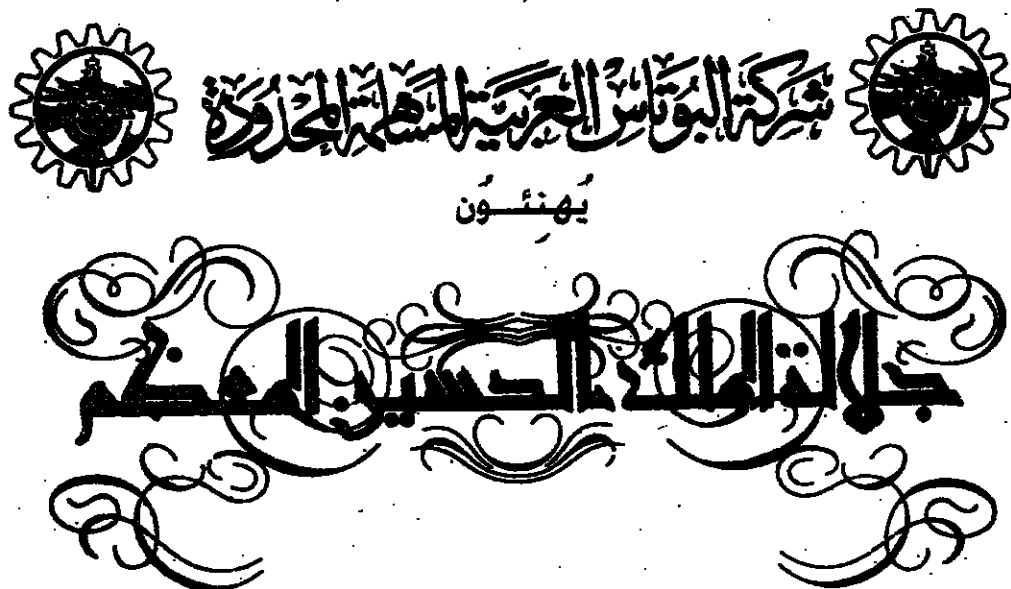 شَركة البُوتاسْ العَربيَّة المسَاهمَة المحْدُودَة
يُهنِئُون
جلالة الملك الحسين المعظم